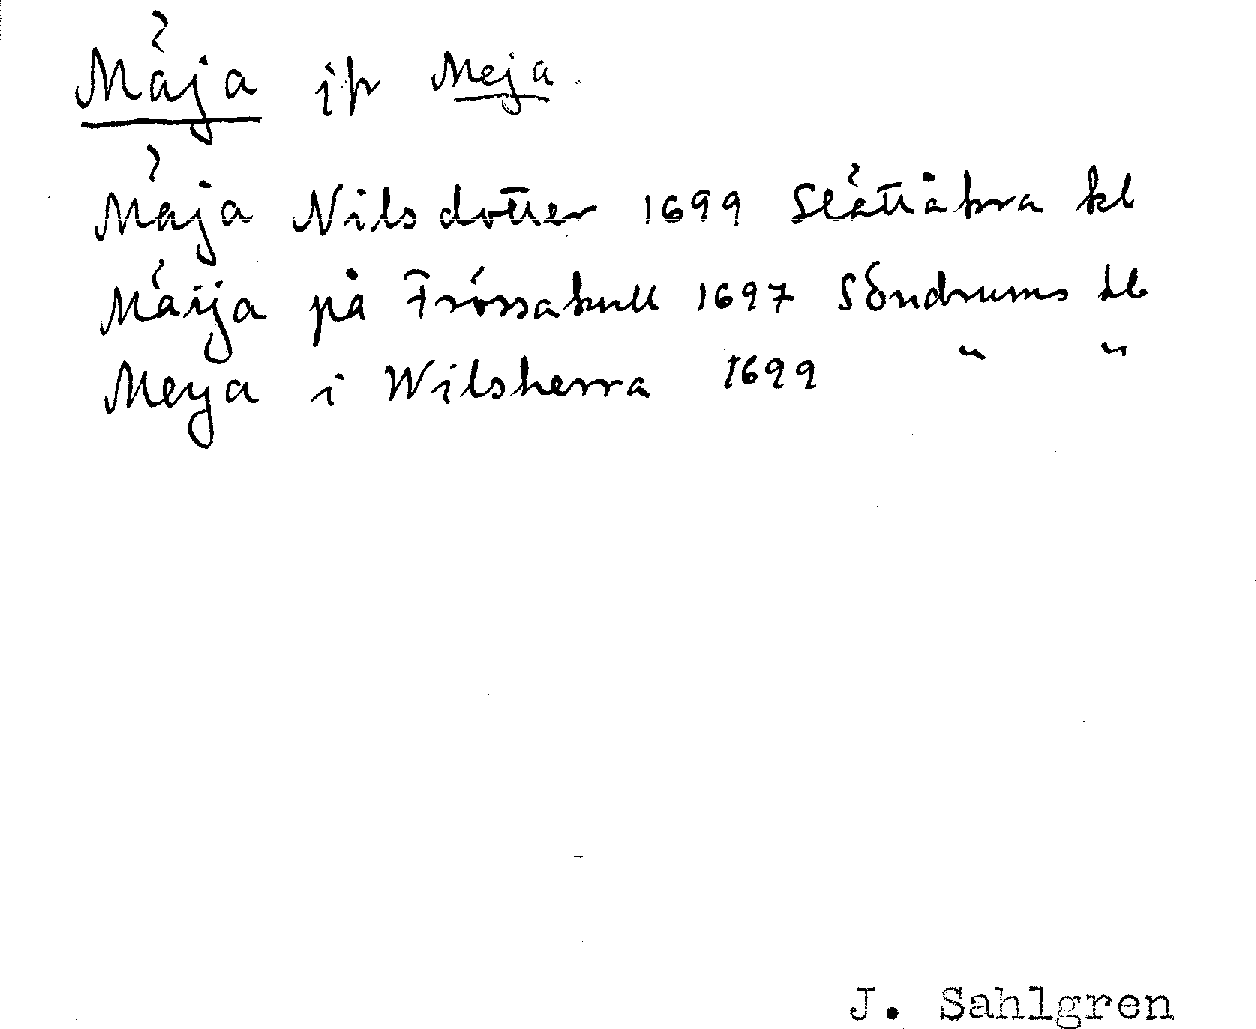 Mäja ip Meja
Mäja Nilsdotter 1699 Slättåkra kl
Mäija på Frössakull 1697 Söndrums kl
Meija i Wilsherra 1699 " "
J. Sahlgren